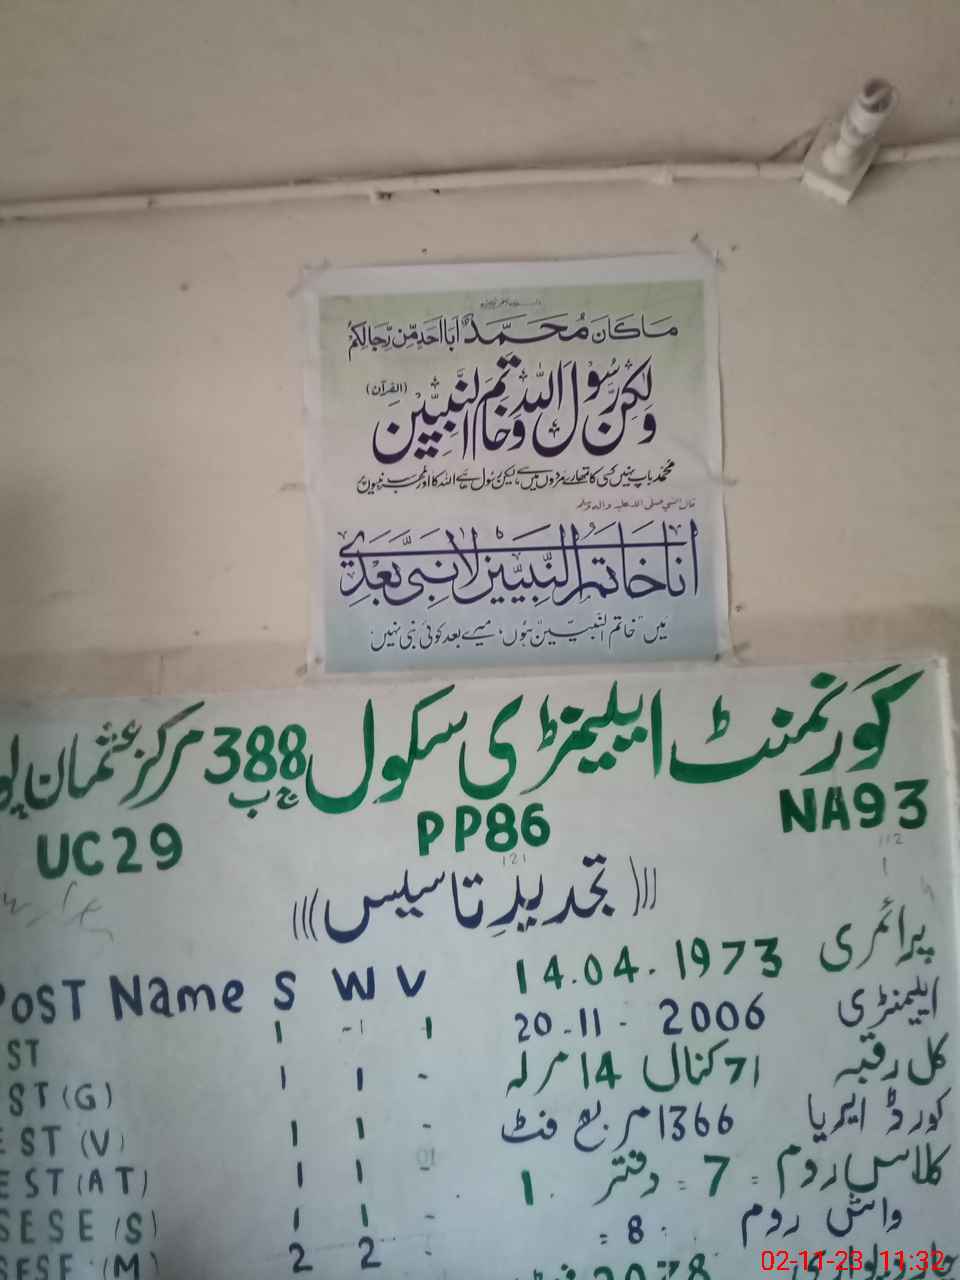 مَاكَانَ مُحَمَّدٌ اَبَا اَحَدٍ مِّنْ رِّجَالِكُمْ
وَلٰكِنْ رَّسُوْلَ اللّٰهِ وَخَاتَمَ النَّبِيّٖنَ (القرآن)
محمد باپ نہیں کسی کا تمہارے مردوں میں سے لیکن رسول ہے اللہ کا اور
قال النبی صلی اللہ علیہ وآلہ وسلم
اَنَا خَاتَمُ النَّبِيّٖنَ لَا نَبِيَّ بَعْدِي
میں خاتم النّبیین ہوں، میرے بعد کوئی نبی نہیں
گورنمنٹ ایلیمنٹری سکول 388 ج ب مرکز عثمان
NA93 PP86 UC29
112
121
(((تجدیدِ تاسیس)))
پرائمری 14.04.1973
ایلیمنٹری 20-11-2006
کل رقبہ 71 کنال 14 مرلہ
کورڈ ایریا 1366 مربع فٹ
کلاس روم = 7 = دفتر 1
واش روم = 8
2078
Post Name S W V
ST 1 - 1 1
ST (G) 1 1 -
EST (V) 1 1 -
01
EST (AT) 1 1 -
SESE (S) 1 1 -
SESE (M) 2 2 -
02-11-23 11:32